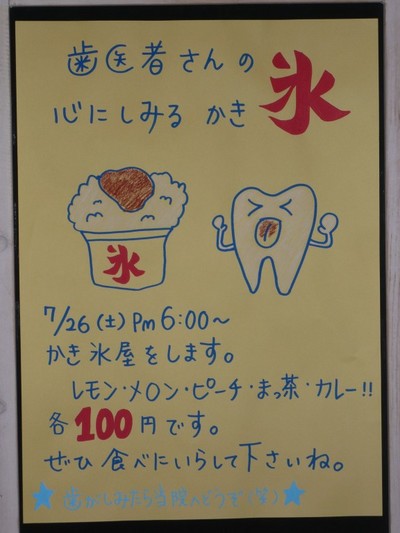 歯医者さんの
心にしみる かき氷
氷
7/26(土)Pm6:00〜
かき氷屋をします。
レモン・メロン・ピーチ・まっ茶・カレー!!
各100円です。
ぜひ食べにいらして下さいね。
★歯がしみたら当院へどうぞ(笑)★